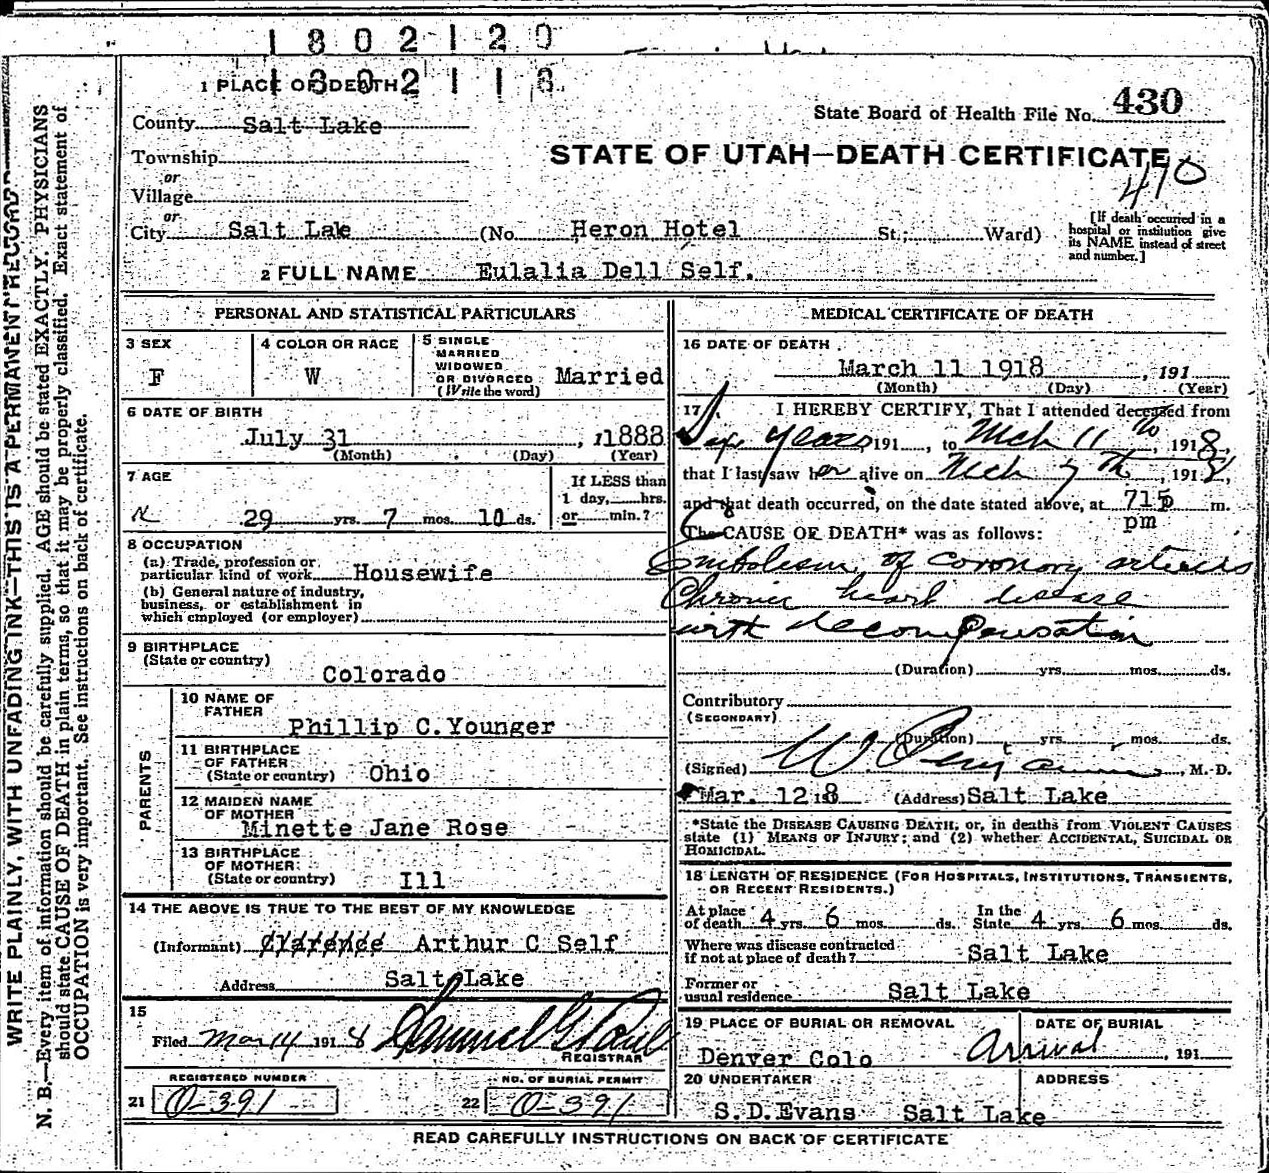 1802120
1802118
1 PLACE OF DEATH
State Board of Health File No. 430
County Salt Lake
STATE OF UTAH—DEATH CERTIFICATE
470
Township
or
Village
or
City Salt Lake (No. Heron Hotel St.; Ward)
[If death occurred in a
hospital or institution give
its NAME instead of street
and number.]
2 FULL NAME Eulalia Dell Self.
PERSONAL AND STATISTICAL PARTICULARS
3 SEX
F
4 COLOR OR RACE
W
5 SINGLE
MARRIED
WIDOWED
OR DIVORCED
(Write the word)
Married
6 DATE OF BIRTH
July 31, 1888
(Month) (Day) (Year)
7 AGE
29 yrs. 7 mos. 10 ds.
If LESS than
1 day, hrs.
or min.?
8 OCCUPATION
(a) Trade, profession or
particular kind of work Housewife
(b) General nature of industry,
business, or establishment in
which employed (or employer)
9 BIRTHPLACE
(State or country)
Colorado
PARENTS
10 NAME OF
FATHER
Phillip C. Younger
11 BIRTHPLACE
OF FATHER
(State or country) Ohio
12 MAIDEN NAME
OF MOTHER
Minette Jane Rose
13 BIRTHPLACE
OF MOTHER
(State or country) Ill
14 THE ABOVE IS TRUE TO THE BEST OF MY KNOWLEDGE
(Informant) Clarence Arthur C Self
Address Salt Lake
15
Filed Mar 14 1918
REGISTRAR
REGISTERED NUMBER
21 0-391
NO. OF BURIAL PERMIT
22 0-391
MEDICAL CERTIFICATE OF DEATH
16 DATE OF DEATH
March 11 1918, 191
(Month) (Day) (Year)
17 I HEREBY CERTIFY, That I attended deceased from
years, 191, to Mch 11th, 1918,
that I last saw her alive on Mch 7th, 1918,
and that death occurred, on the date stated above, at 715 p m.
pm
The CAUSE OF DEATH* was as follows:
Embolism of coronary arteries
Chronic heart disease
with decompensation
(Duration) yrs. mos. ds.
Contributory
(SECONDARY)
(Duration) yrs. mos. ds.
(Signed) W. Benjamin, M. D.
Mar. 12 18 (Address) Salt Lake
*State the DISEASE CAUSING DEATH, or, in deaths from VIOLENT CAUSES
state (1) MEANS OF INJURY; and (2) whether ACCIDENTAL, SUICIDAL OR
HOMICIDAL.
18 LENGTH OF RESIDENCE (FOR HOSPITALS, INSTITUTIONS, TRANSIENTS,
OR RECENT RESIDENTS.)
At place
of death 4 yrs. 6 mos. ds.
In the
State 4 yrs. 6 mos. ds.
Where was disease contracted
if not at place of death? Salt Lake
Former or
usual residence Salt Lake
19 PLACE OF BURIAL OR REMOVAL
Denver Colo
DATE OF BURIAL
Arrival, 191
20 UNDERTAKER
ADDRESS
S.D. Evans Salt Lake
READ CAREFULLY INSTRUCTIONS ON BACK OF CERTIFICATE
WRITE PLAINLY, WITH UNFADING INK—THIS IS A PERMANENT RECORD
N. B.—Every item of information should be carefully supplied. AGE should be stated EXACTLY. PHYSICIANS
should state CAUSE OF DEATH in plain terms, so that it may be properly classified. Exact statement of
OCCUPATION is very important. See instructions on back of certificate.